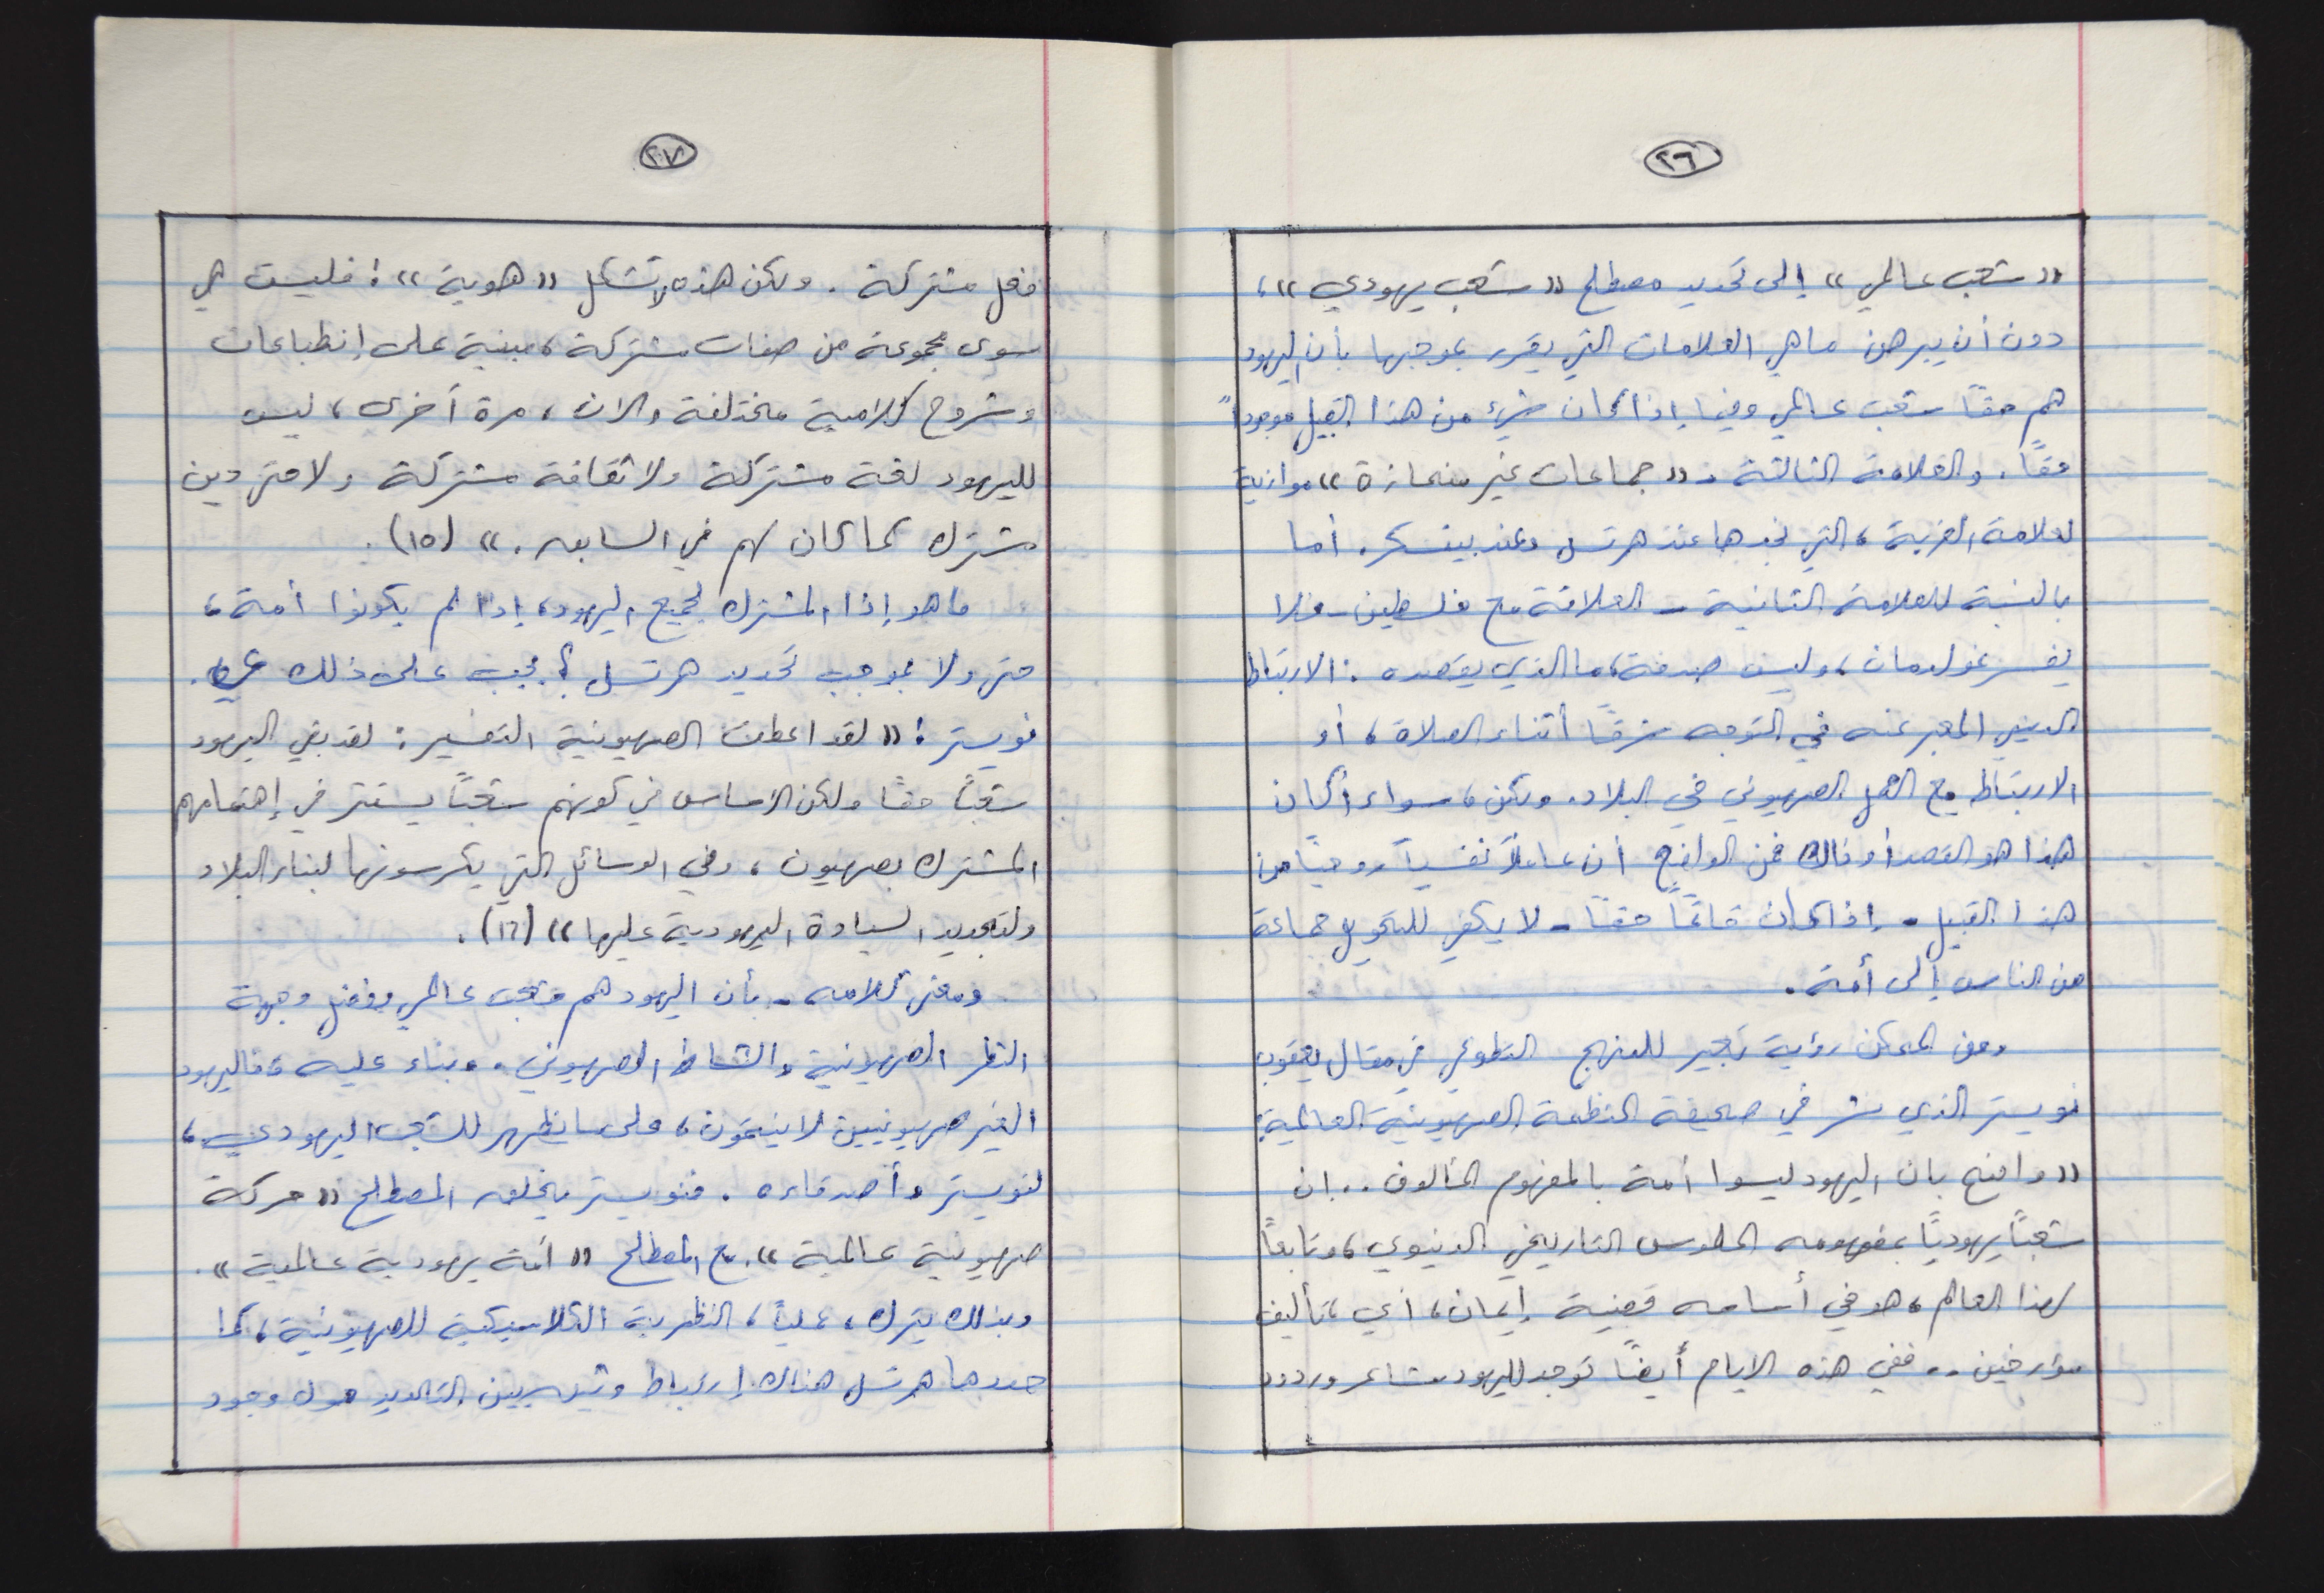 ٢٦
«شعب عالمي» إلى تحديد مصطلح «شعب يهودي»،
دون أن يبرهن ما هي العلامات التي يقرر بموجبها بأن اليهود
هم حقاً شعب عالمي وفيما إذا كان شيء من هذا القبيل موجوداً
حقاً. والعلامة الثالثة - «جماعات غير منحازة» موازية
لعلامة الغربة، التي نجدها عند هرتسل وعند بينسكر. أما
بالنسبة للعلامة الثانية - العلاقة مع فلسطين - فلا
يفسر غولدمان، وليس صدفة، ما الذي يقصده: الارتباط
الديني المعبر عنه في التوجه شرقاً أثناء الصلاة، أو
الارتباط مع العمل الصهيوني في البلاد. ولكن، سواء أكان
هذا هو القصد أو ذاك فمن الواضح أن عاملاً نفسياً روحياً من
هذا القبيل - إذا كان قائماً حقاً - لا يكفي لتحويل جماعة
من الناس إلى أمة.
ومن الممكن رؤية تعبير للمنهج التطوعي في مقال يعقوب
نويستر الذي نشر في صحيفة المنظمة الصهيونية العالمية:
«واضح بان اليهود ليسوا أمة بالمفهوم المألوف.. ان
شعباً يهودياً بمفهومه الملموس التاريخي الدنيوي، وتابعاً
لهذا العالم، هو في أساسه قضية إيمان، أي، تأليف
مؤرخين.. ففي هذه الايام أيضاً توجد لليهود مشاعر وردود
٢٧
فعل مشتركة. ولكن هذه لا تشكل «هوية»: فليست هي
سوى مجموعة من صفات مشتركة، مبنية على إنطباعات
وشروح كلامية مختلفة والان، مرة أخرى، ليس
لليهود لغة مشتركة ولا ثقافة مشتركة ولا حتى دين
مشترك كما كان لهم في السابق.» (١٥).
ما هو إذا المشترك لجميع اليهود، إذا لم يكونوا أمة،
حتى ولا بموجب تحديد هرتسل؟ يجيب على ذلك ي.
نويستر: «لقد اعطت الصهيونية التفسير: لقد بقي اليهود
شعباً حقاً ولكن الاساس في كونهم شعباً يستتر في إهتمامهم
المشترك بصهيون، وفي الوسائل التي يكرسونها لبناء البلاد
ولتجديد السيادة اليهودية عليها» (١٦).
ومعنى كلامه - بأن اليهود هم شعب عالمي وفضل وجهة
النظر الصهيونية والنشاط الصهيوني. وبناء عليه، فاليهود
الغير صهيونيين لا ينتمون، على ما يظهر للشعب اليهودي،
لنويستر وأصدقاءه. فنويستر يخلط المصطلح «حركة
صهيونية عالمية». مع المصطلح «أمة يهودية عالمية».
وبذلك يترك، عملياً، النظرية الكلاسيكية للصهيونية، كما
حددها هرتسل هناك إرتباط وثيق بين التحديد حول وجود